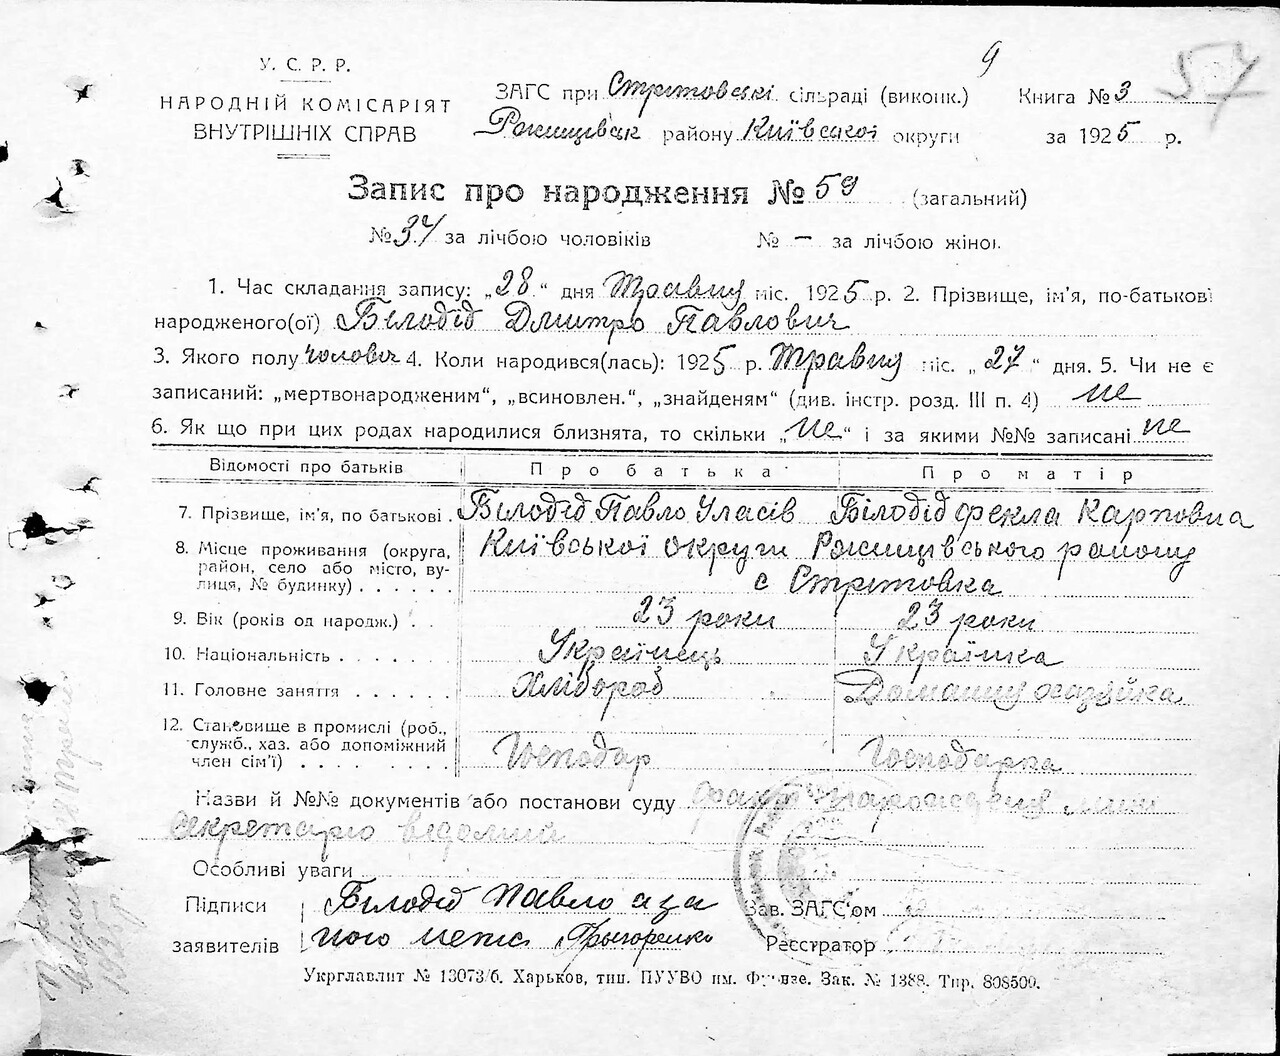 9
57
У. С. Р. Р.
НАРОДНІЙ КОМІСАРІЯТ
ВНУТРІШНІХ СПРАВ
ЗАГС при Стрітовські сільраді (виконк.)
Ржищівськ району Київської округи
Книга № 3
за 1925 р.
Запис про народження № 59 (загальний)
№ 34 за лічбою чоловіків № — за лічбою жіноı.
1. Час складання запису: „28“ дня Травня міс. 1925 р. 2. Прізвище, ім'я, по-батькові
народженого(ої) Білодід Дмитро Павлович
3. Якого полу чоловіч 4. Коли народився(лась): 1925 р. Травня міс. „27“ дня. 5. Чи не є
записаний: „мертвонародженим“, „всиновлен.“, „знайденям“ (див. інстр. розд. III п. 4) не
6. Як що при цих родах народилися близнята, то скільки „не“ і за якими №№ записані не
Відомості про батьків Про батька Про матір
7. Прізвище, ім'я, по батькові . Білодід Павло Уласів Білодід Фекла Карповна
8. Місце проживання (округа, район, село або місто, вулиця, № будинку) . . . . . . Київської округи Ржищівського району
с Стрітовка
9. Вік (років од народж.) . . 23 роки 23 роки
10. Національність . . . . . . Українець Українка
11. Головне заняття . . . . . . Хлібороб Домашня хазяйка
12. Становище в промислі (роб., служб., хаз. або допоміжний член сім'ї) . . . . . . . . Господар Господарка
Назви й №№ документів або постанови суду факт народження мині
секретарю ведомий
Особливі уваги
Підписи Білодід Павло а за Зав. ЗАГС'ом
заявителів його Григоренко Реєстратор
Укрглавліт № 13073/б. Харьков, тип. ПУУВО им. Фрунзе. Зак. № 1388. Тир. 808500.